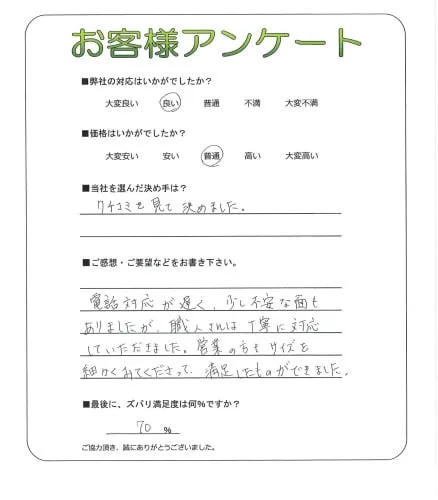 お客様アンケート
■弊社の対応はいかがでしたか？
大変良い 良い 普通 不満 大変不満
■価格はいかがでしたか？
大変安い 安い 普通 高い 大変高い
■当社を選んだ決め手は？
クチコミを見て決めました。
■ご感想・ご要望などをお書き下さい。
電話対応が遅く、少し不安な面も
ありましたが、職人さんは丁寧に対応
していただきました。営業の方もサイズを
細かくみてくださって、満足したものができました。
■最後に、ズバリ満足度は何％ですか？
70 ％
ご協力頂き、誠にありがとうございました。